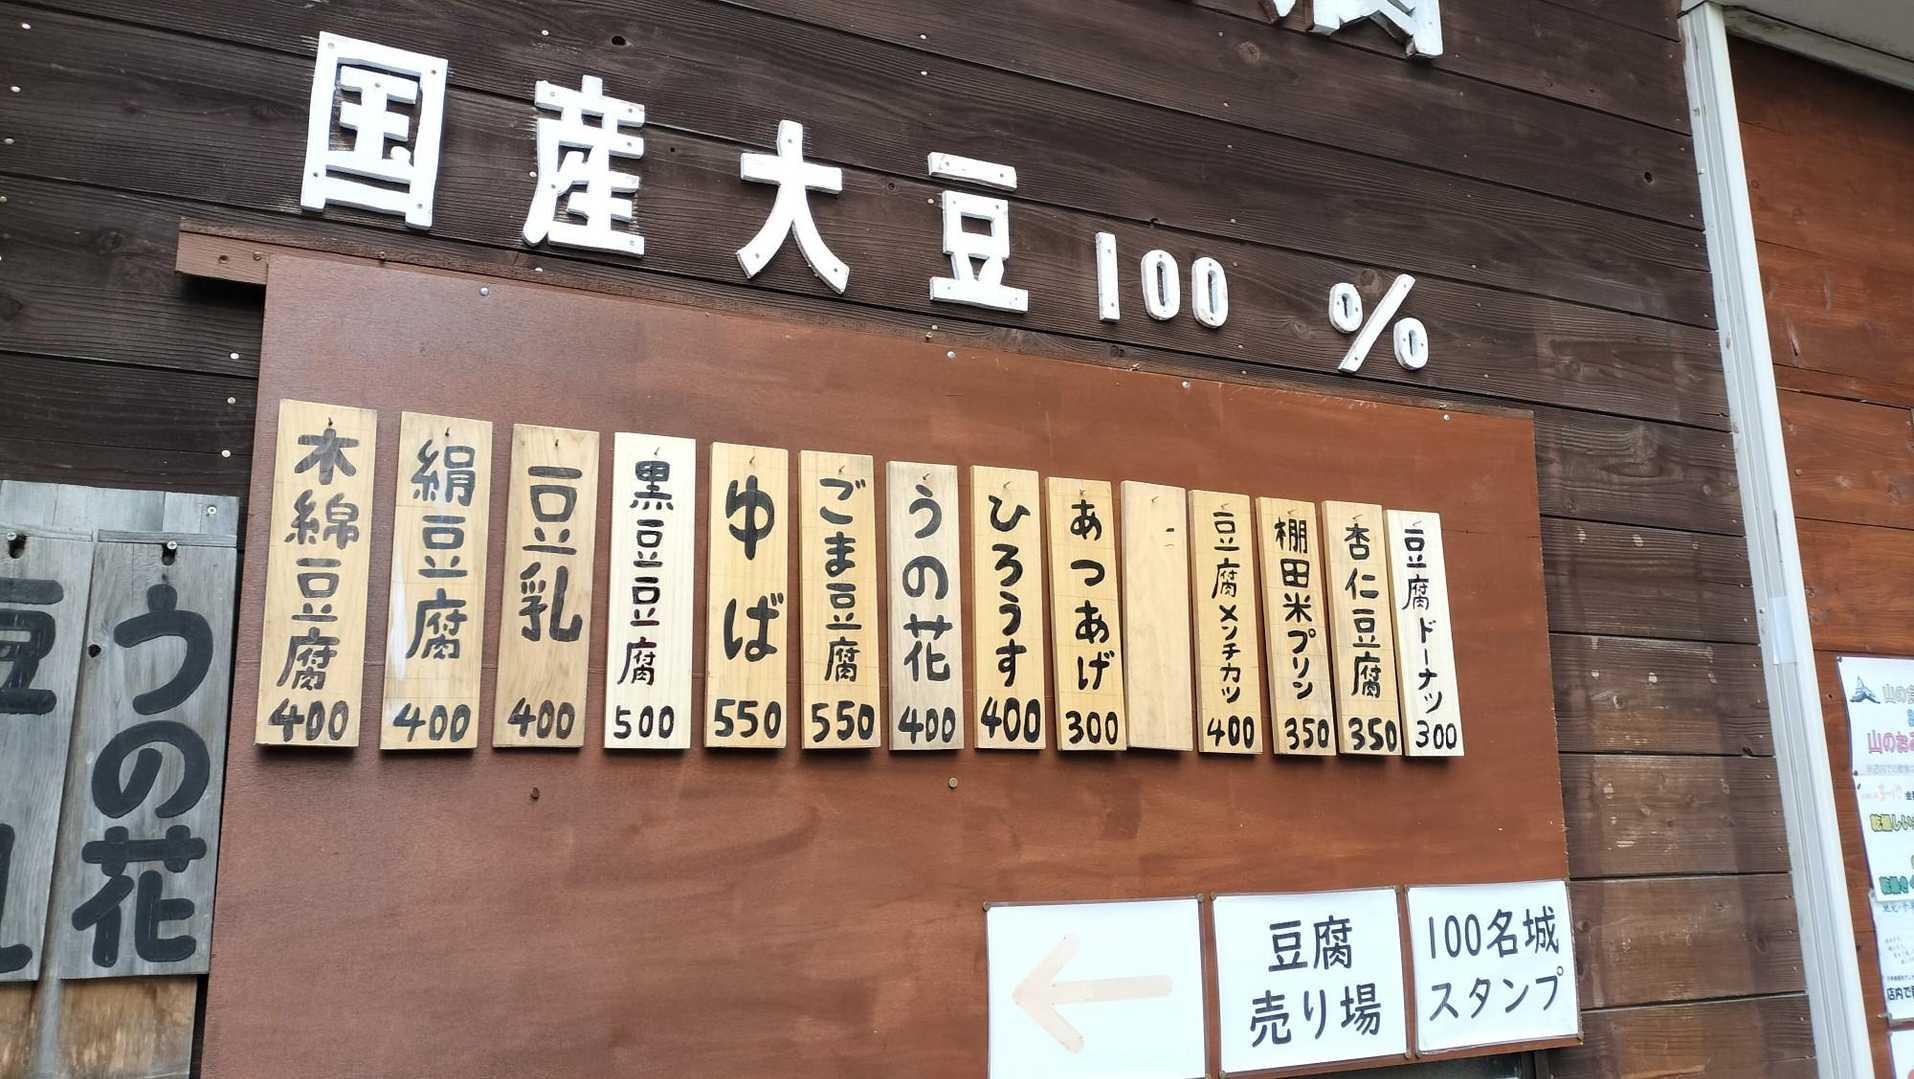 国産大豆100%
木綿豆腐400
絹豆腐400
豆乳400
黒豆豆腐500
ゆば550
ごま豆腐550
うの花400
ひろうす400
あつあげ300
豆腐メンチカツ400
棚田米プリン350
杏仁豆腐350
豆腐ドーナツ300
うの花
豆
←
豆腐
売り場
100名城
スタンプ